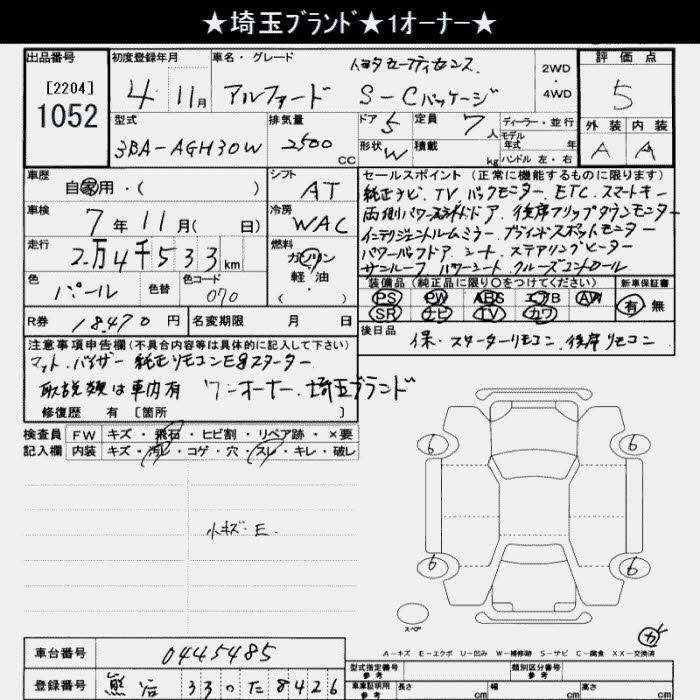 ★埼玉ブランド★1オーナー★
出品番号 初度登録年月 車名・グレード 評価点
[2204] 4 11月 アルファード S-Cパッケージ 2WD・4WD 5
1052 型式 排気量 ドア 5 定員 7人 ディーラー・並行 外装 内装
3BA-AGH30W 2500 CC 形状 W 積載 kg モデル年式 年 A A
ハンドル 左・右
車歴 シフト セールスポイント (正常に機能するものに限ります)
自家用・( ) AT 純正ナビ. TV バックモニター. ETC. スマートキー
車検 冷房 両側パワースライドドア. 後席フリップダウンモニター
7年11月( 日) WAC インテリジェントルームミラー. ブラインドスポットモニター
走行 燃料 パワーバックドア シート. ステアリングヒーター
2万4千533km ガソリン サンルーフ パワーシート クルーズコントロール
軽油
( )
色 色替 色コード 装備品 (純正品に限り○をつけてください) 新車保証書
パール 070 PS PW ABS エアB AW 有 無
SR ナビ TV カワ
R券 18,470円 名変期限 月 日 後日品
保. スターターリモコン. 後席リモコン
注意事項申告欄(不具合内容等は具体的に記入して下さい)
マット. バイザー 純正リモコンEgスターター
取説類は車内有 ワンオーナー. 埼玉ブランド
修復歴 有 [箇所 ]
検査員 FW キズ・飛石・ヒビ割・リペア跡・×要
記入欄 内装 キズ・汚レ・コゲ・穴・スレ・キレ・破レ
6 6
小キズ E
6 6
スペア
カ
A-キズ E-エクボ U-凹み W-補修跡 S-サビ C-腐食 XX-交換済
車台番号 0445485 型式指定番号 参考 類別区分番号 参考
登録番号 熊谷 33 のた 8426 車庫証明用 参考 長さ cm 幅 cm 高さ cm